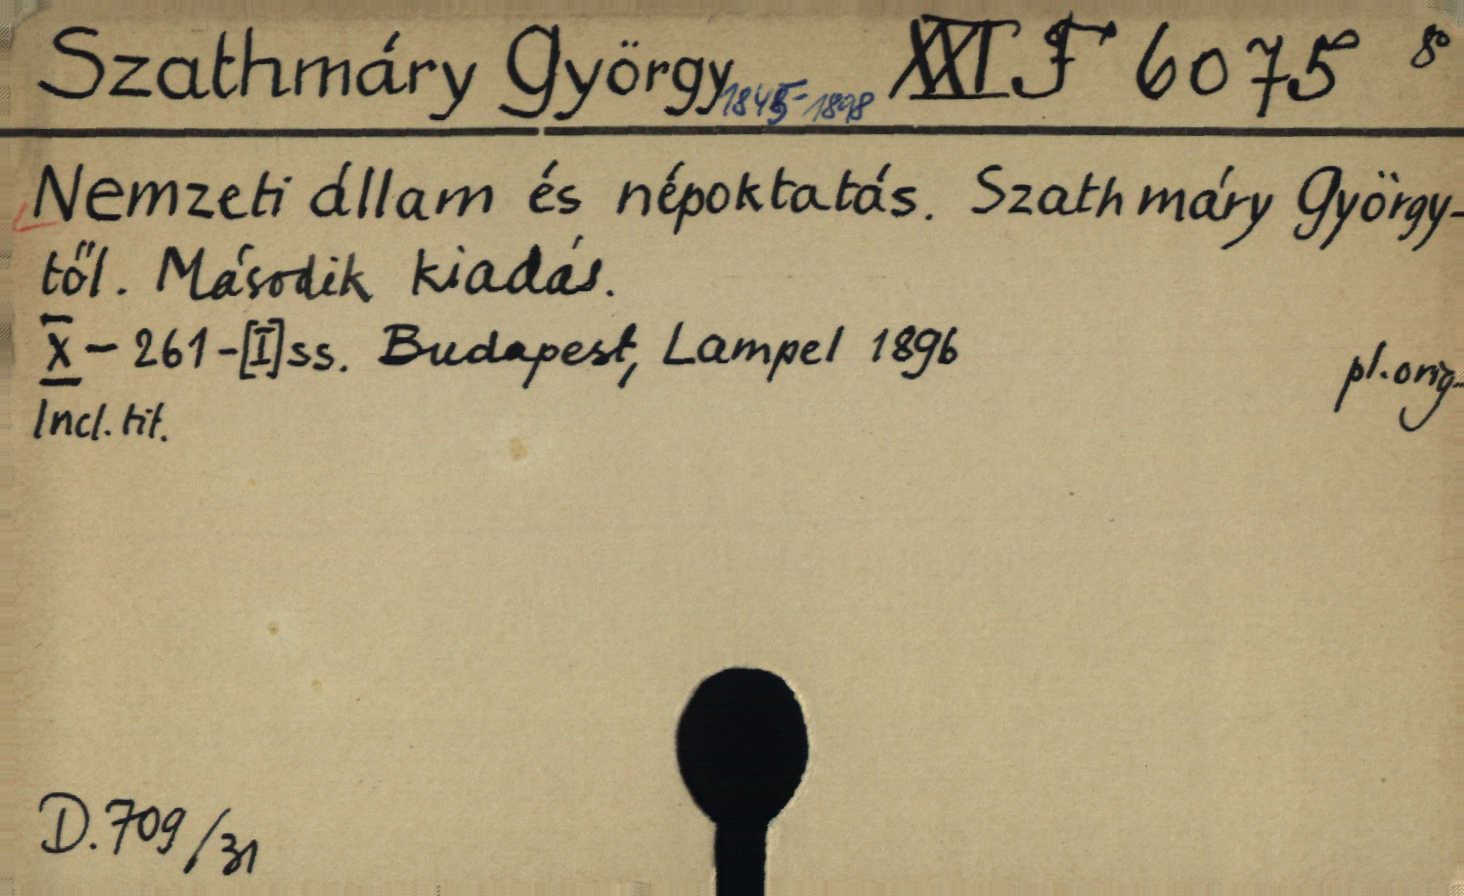 Szathmáry György 1845-1898 XXI F 6075 8°
Nemzeti állam és népoktatás. Szathmáry György-
től. Második kiadás.
X - 261 - [I] ss. Budapest, Lampel 1896
pl. orig.
Incl. tit.
D. 709/31